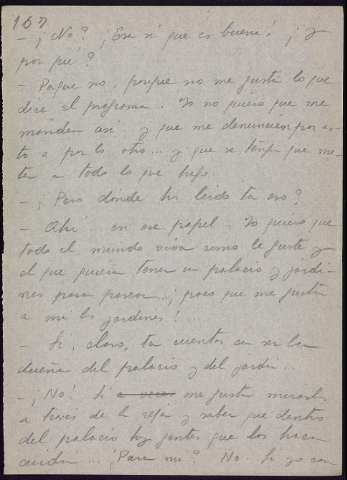 157
- ¡No? ¡Esa sí que es buena! ¡Y
por qué?
- Porque no, porque no me gusta lo que
dice el programa. Yo no quiero que me
manden así y que me denuncien por es-
to o por lo otro... y que se tenga que me-
ter a todo lo que
- ¿Pero dónde has leído tu eso?
- Ahí en ese papel. Yo quiero que
todo el mundo viva como le guste y
el que quiera tener un palacio y jardi-
nes para pasear... ¡pues que me gustan
a mí los jardines!...
- Si, claro, tu cuentas con ser la
dueña del palacio y del jardín...
- ¡No! Si a veces me gusta mirarlos
a través de la reja y saber que dentro
del palacio hay gentes que los hacen
cuidar... ¿Para mí? No. Si yo con